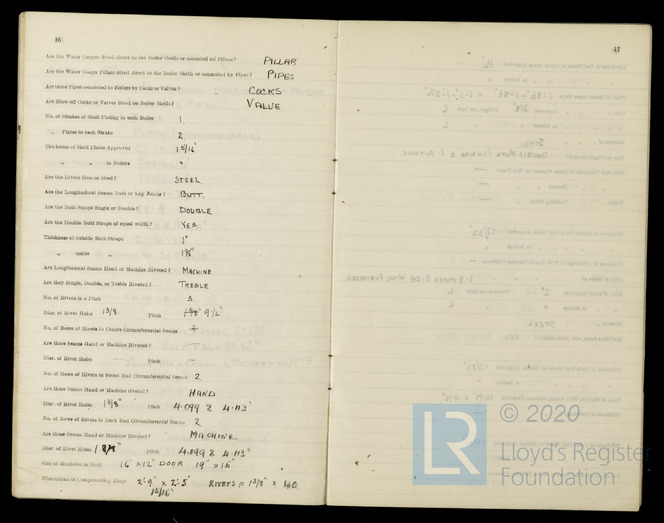 16
Are the Water Gauges fitted direct to the Boiler Shells or mounted on Pillars? PILLAR
Are the Water Gauge Pillars fitted direct to the Boiler Shells or connected by Pipes? PIPES
Are these Pipes connected to Boilers by Cocks or Valves? COCKS
Are Blow-off Cocks or Valves fitted on Boiler Shells? VALVE
No. of Strakes of Shell Plating in each Boiler 1
„ Plates in each Strake 2
Thickness of Shell Plates Approved 1 5/16"
„ „ in Boilers
Are the Rivets Iron or Steel? STEEL
Are the Longitudinal Seams Butt or Lap Joints? BUTT.
Are the Butt Straps Single or Double? DOUBLE
Are the Double Butt Straps of equal width? YES.
Thickness of outside Butt Straps 1"
„ inside „ 1 1/8"
Are Longitudinal Seams Hand or Machine Riveted? MACHINE
Are they Single, Double, or Treble Riveted? TREBLE
No. of Rivets in a Pitch 5
Diar. of Rivet Holes 1 3/8 Pitch 9 1/2"
No. of Rows of Rivets in Centre Circumferential Seams
Are these Seams Hand or Machine Riveted? —
Diar. of Rivet Holes — Pitch —
No. of Rows of Rivets in Front End Circumferential Seams 2
Are these Seams Hand or Machine riveted? HAND
Diar. of Rivet Holes 1 3/8" Pitch 4.099 & 4.113"
No. of Rows of Rivets in Back End Circumferential Seams 2
Are these Seams Hand or Machine Riveted? MACHINE
Diar. of Rivet Holes 1 3/8" Pitch 4.099 & 4.113"
Size of Manholes in Shell 16" x 12" DOOR 19" x 15"
Dimensions of Compensating Rings 2'-9" x 2'-5" RIVETS = 1 3/8" x
1 5/16"
17
LR
© 2020
Lloyd's Register
Foundation